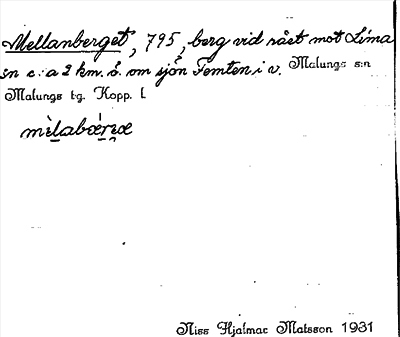 Mellanberget, 795, berg vid rået mot Lima
sn c:a 2 km. ö. om sjön Femten i v. Malungs s:n
Malungs tg. Kopp. l.
mìlabær̥æ
Niss Hjalmar Matsson 1931